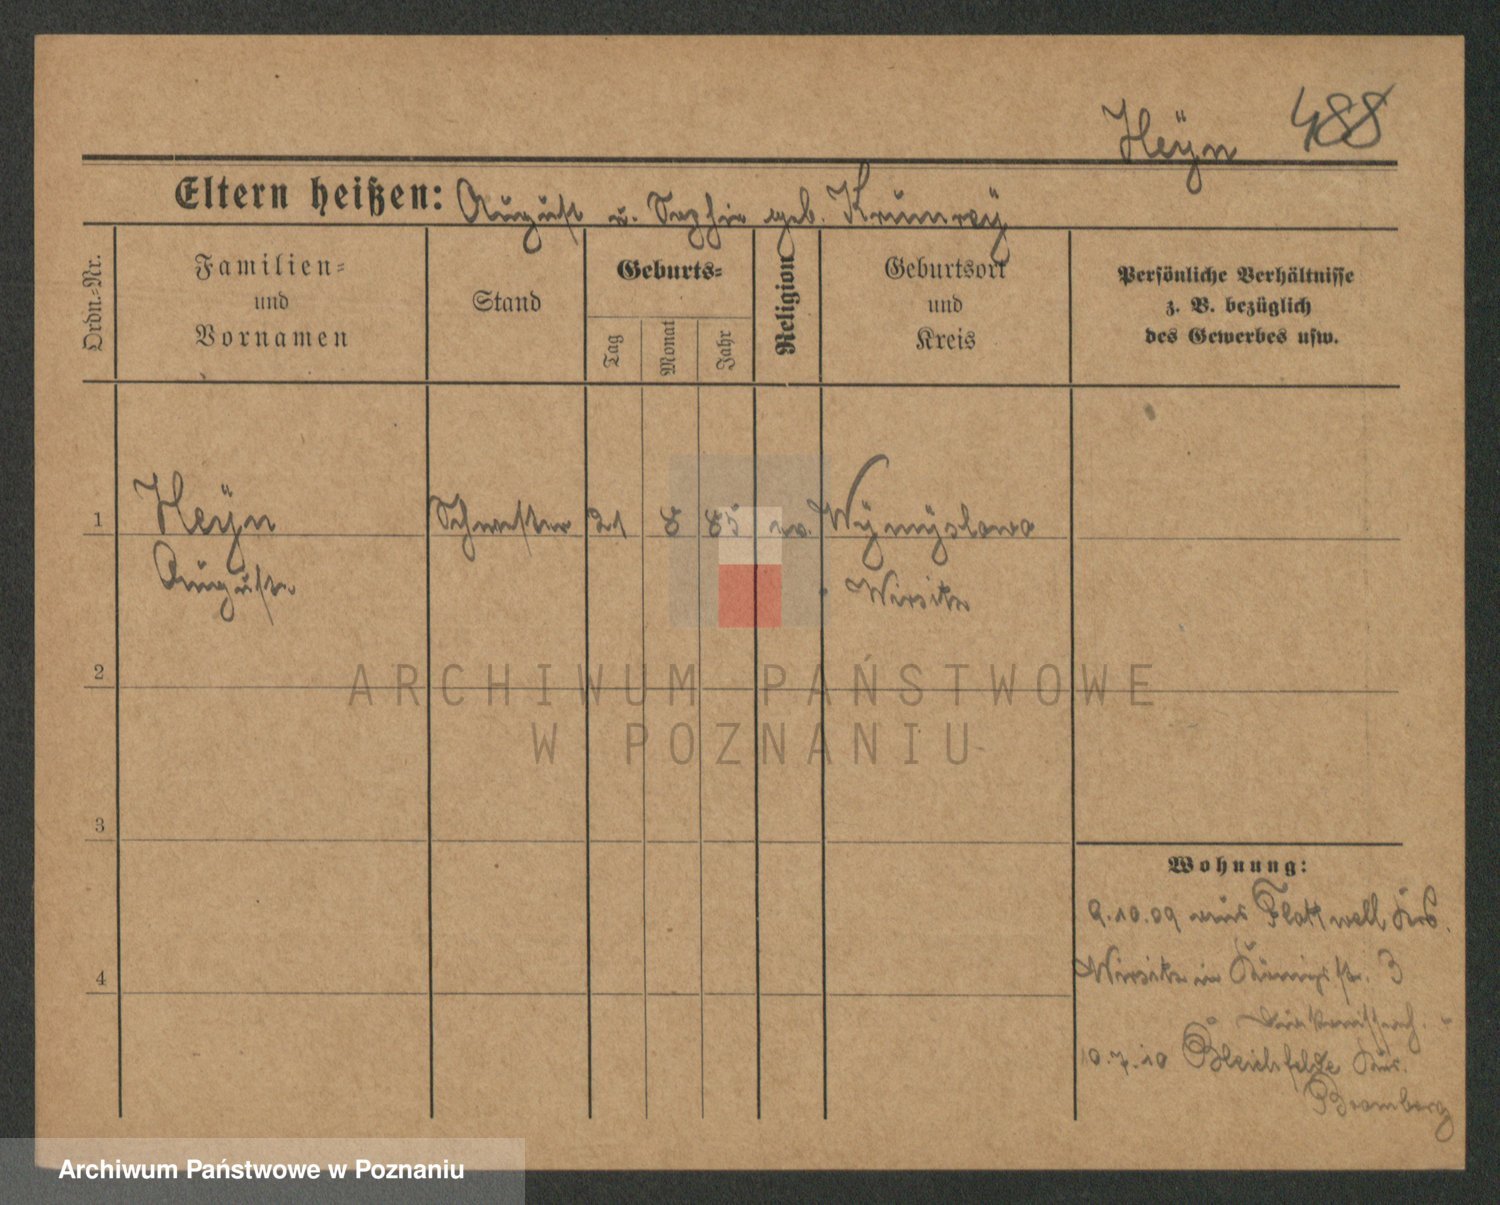 Heÿn 488
Eltern heißen: August u. Sophie geb. Krumreÿ
Ordn.-Nr.
Familien-
und
Vornamen
Stand
Geburts-
Tag
Monat
Jahr
Religion
Geburtsort
und
Kreis
Persönliche Verhältnisse
z. B. bezüglich
des Gewerbes usw.
1 Heÿn Schwester 21 8 85 ev. Wÿmÿslowo
Auguste Wirsitz
2
3
4
Wohnung:
9.10.09 aus Flottwell Krs.
Wirsitz in Königstr. 3
Diakonissenh.
10.7.10 Bleichfelde Krs.
Bromberg
ARCHIWUM PAŃSTWOWE
W POZNANIU
Archiwum Państwowe w Poznaniu